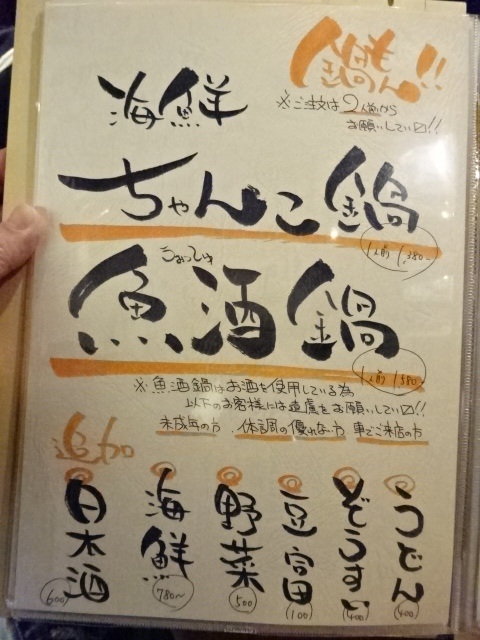 鍋もん!!
※ご注文は2人前から
お願いしています!!
海鮮
ちゃんこ鍋
1人前 1,380-
うおっしゅ
魚酒鍋
1人前 1,580-
※魚酒鍋はお酒を使用している為
以下のお客様には遠慮をお願いしています!!
未成年の方、体調の優れない方 車でご来店の方
追加
日本酒 600
海鮮 780~
野菜 500
豆富 100
ぞうすい 400
うどん 400